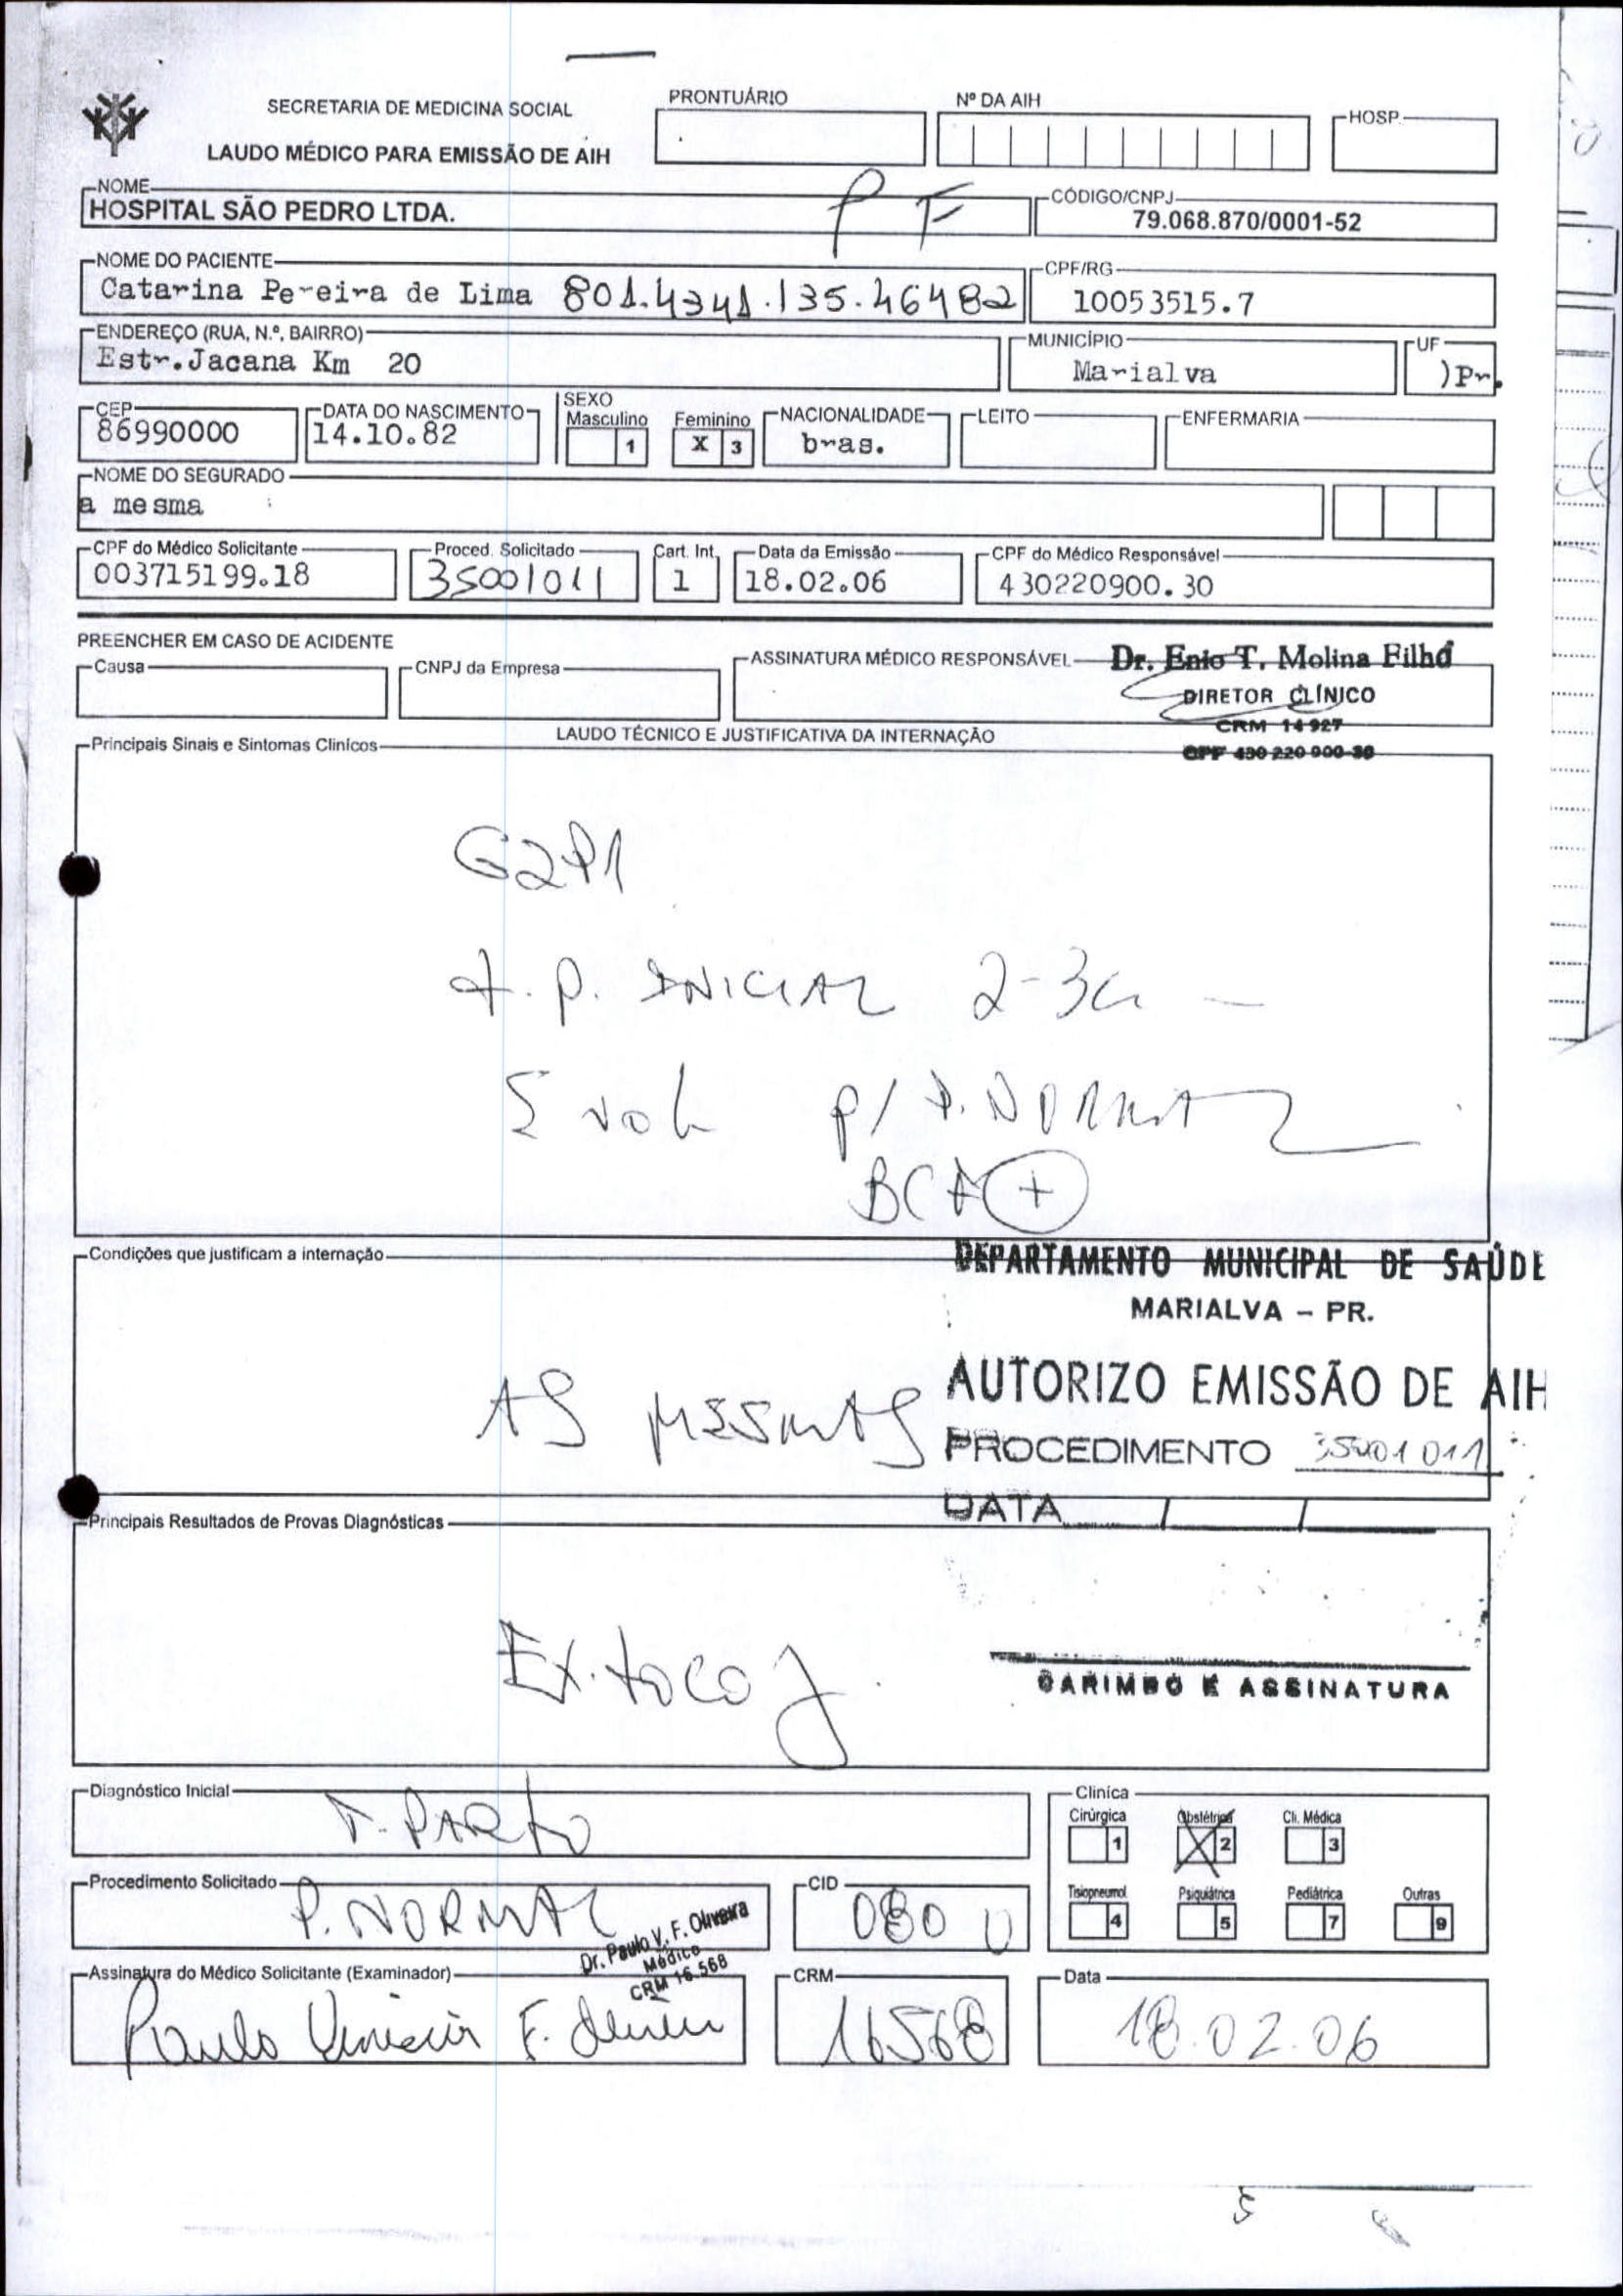 SECRETARIA DE MEDICINA SOCIAL
LAUDO MÉDICO PARA EMISSÃO DE AIH
PRONTUÁRIO
Nº DA AIH
HOSP.
NOME
HOSPITAL SÃO PEDRO LTDA.
P F
CÓDIGO/CNPJ
79.068.870/0001-52
NOME DO PACIENTE
Catarina Pereira de Lima 801.4341.135.46482
CPF/RG
10053515.7
ENDEREÇO (RUA, N.º, BAIRRO)
Estr.Jacana Km 20
MUNICÍPIO
Marialva
UF
)Pr.
CEP
86990000
DATA DO NASCIMENTO
14.10.82
SEXO
Masculino 1
Feminino X 3
NACIONALIDADE
bras.
LEITO
ENFERMARIA
NOME DO SEGURADO
a mesma
CPF do Médico Solicitante
003715199.18
Proced. Solicitado
35001011
Cart. Int.
1
Data da Emissão
18.02.06
CPF do Médico Responsável
430220900.30
PREENCHER EM CASO DE ACIDENTE
Causa
CNPJ da Empresa
ASSINATURA MÉDICO RESPONSÁVEL
Dr. Enio T. Molina Filho
DIRETOR CLÍNICO
CRM 14927
CPF 430 220 900-30
LAUDO TÉCNICO E JUSTIFICATIVA DA INTERNAÇÃO
Principais Sinais e Sintomas Clinícos
G2P1
T.P. INICIAL 2-3
P/ P. NORMAL
BCF +
Condições que justificam a internação
AS MESMAS
DEPARTAMENTO MUNICIPAL DE SAÚDE
MARIALVA - PR.
AUTORIZO EMISSÃO DE AIH
PROCEDIMENTO 35001011
DATA / /
CARIMBO E ASSINATURA
Principais Resultados de Provas Diagnósticas
Ex. toco
Diagnóstico Inicial
T. PARTO
Clínica
Cirúrgica 1
Obstétrica 2
Cli. Médica 3
Tisiopneumol. 4
Psiquiátrica 5
Pediátrica 7
Outras 9
Procedimento Solicitado
P. NORMAL
CID
080 0
Dr. Paulo V. F. Oliveira
Médico
CRM 16.568
Assinatura do Médico Solicitante (Examinador)
Paulo Vinicius F.
CRM
16568
Data
18.02.06